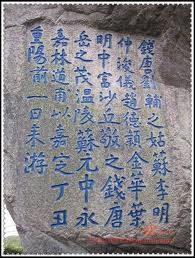 錢唐劉輔之姑蘇李明
仲浚儀趙德頴金華葉
明中富沙丘敬之錢唐
岳之茂溫陵蘇元中永
嘉林道甫以嘉定丁丑
重陽前一日来游